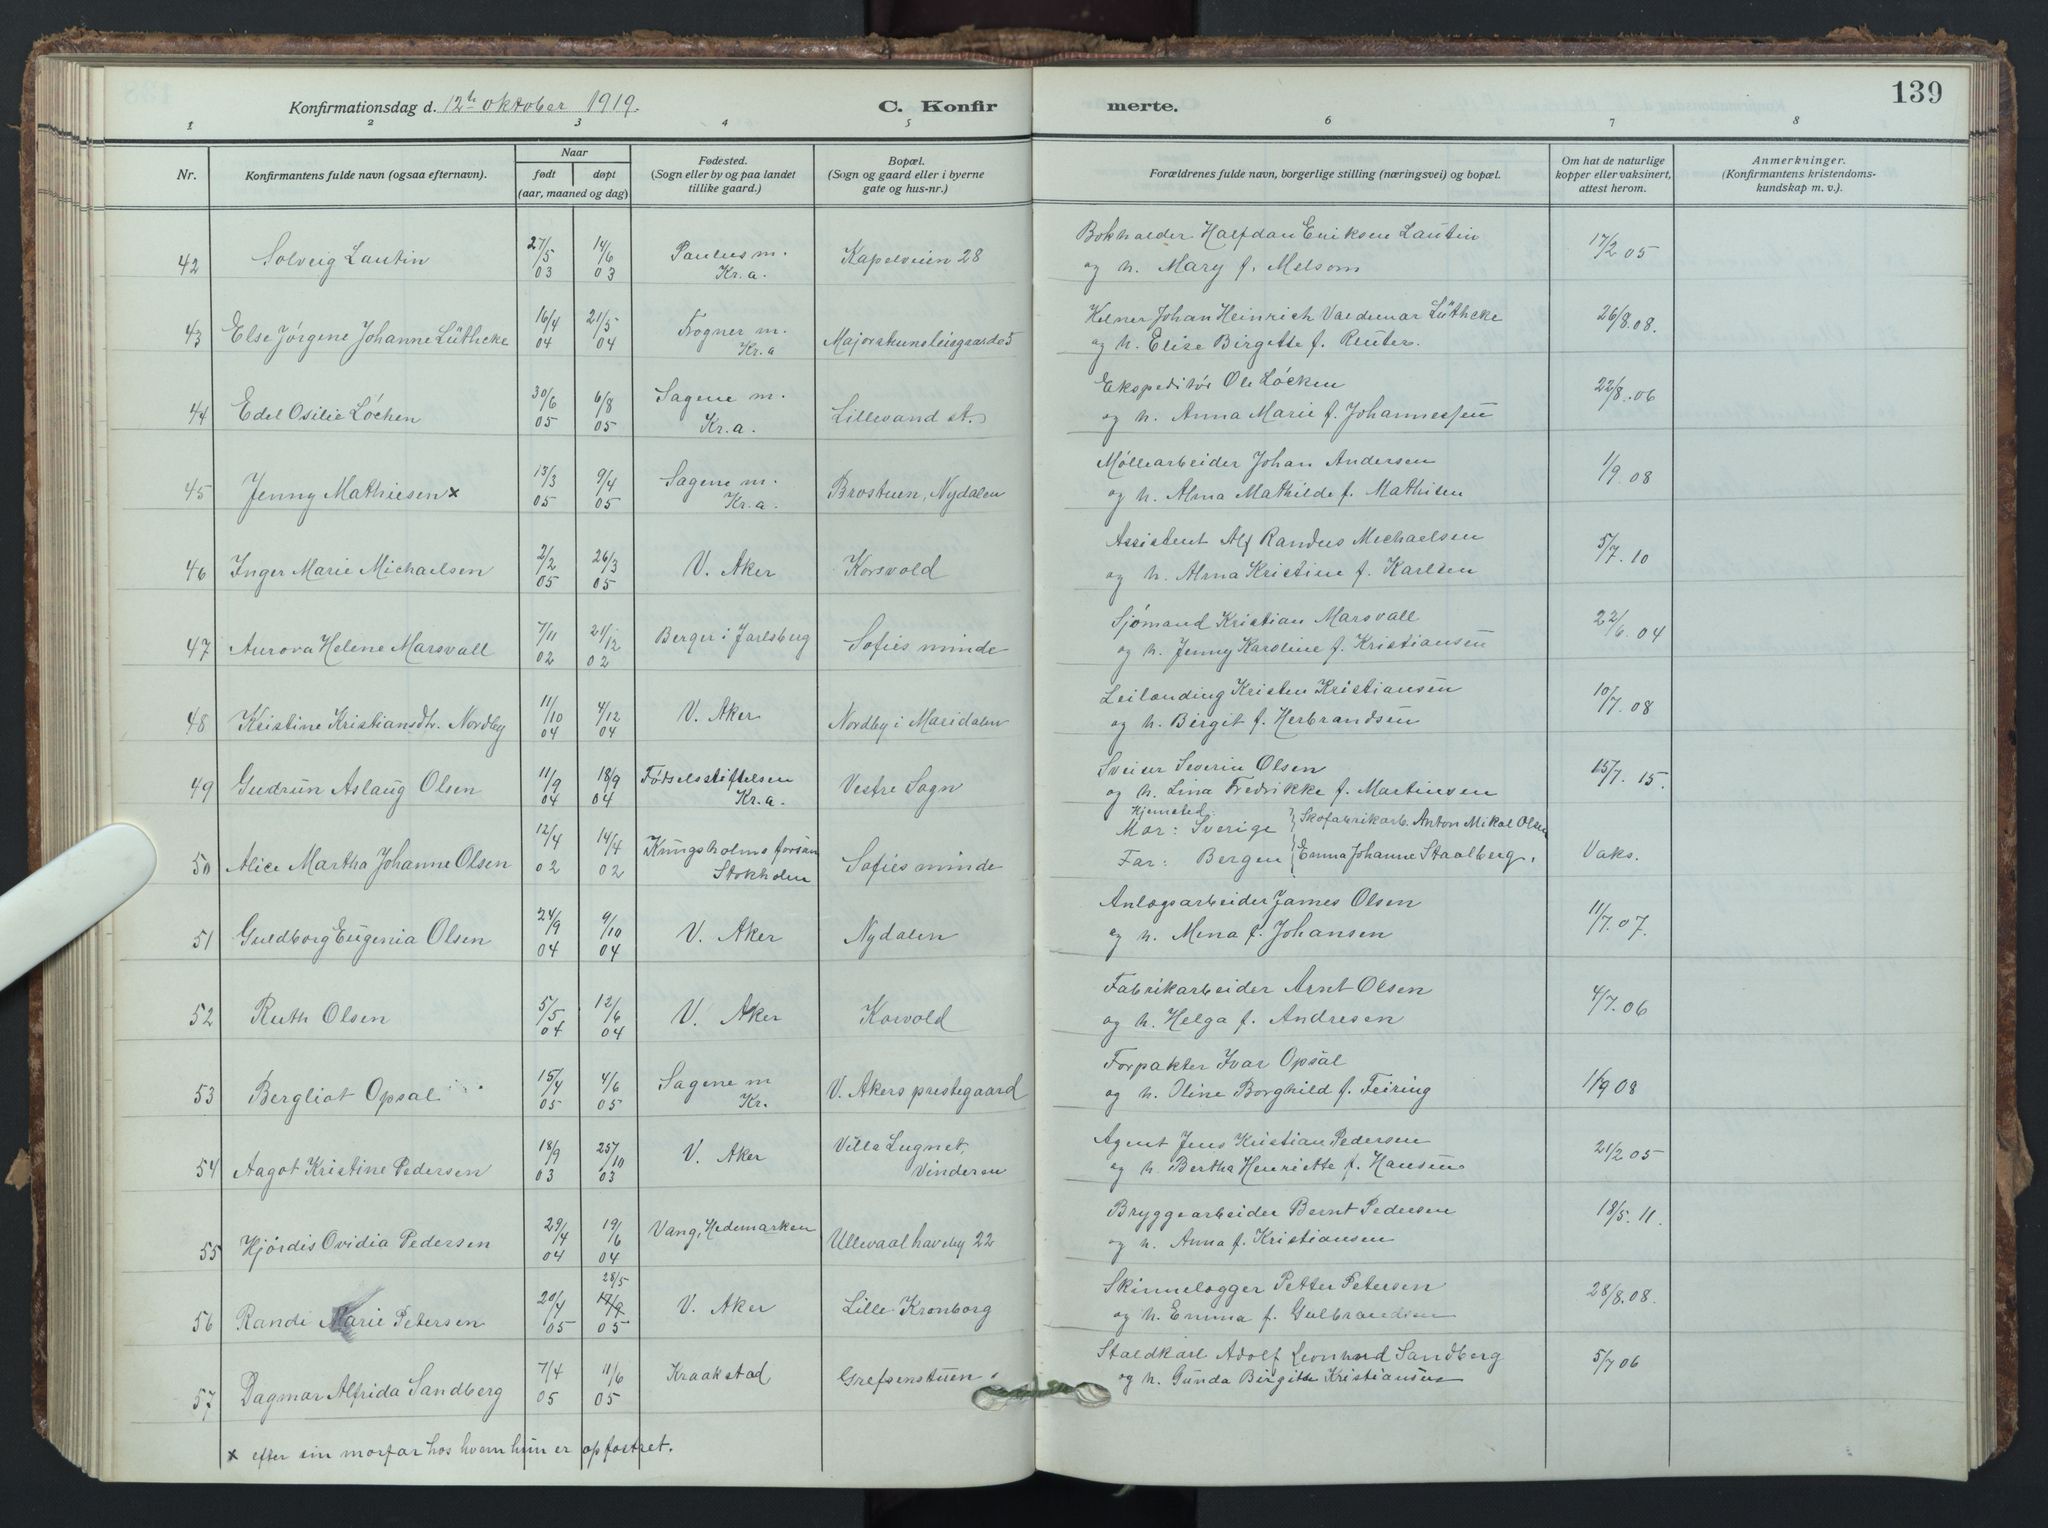 139
Konfirmationsdag d. 12te oktober 1919.
C. Konfir merte.
1 2 3 4 5 6 7 8
Nr.
Konfirmantens fulde navn (ogsaa efternavn).
Naar
født døpt
(aar, maaned og dag)
Fødested.
(Sogn eller by og paa landet
tillike gaard.)
Bopæl.
(Sogn og gaard eller i byerne
gate og hus-nr.)
Forældrenes fulde navn, borgerlige stilling (næringsvei) og bopæl.
Om hat de naturlige
kopper eller vaksinert,
attest herom.
Anmerkninger.
(Konfirmantens kristendoms-
kundskap m. v.).
42 Solveig Lautin 27/5 03 14/6 03 Paulus m. Kr.a. Kapelveien 28
Bokholder Halfdan Eriksen Lautin 17/2 05
og h. Mary f. Melsom
43 Else Jørgene Johanne Lüthcke 16/4 04 21/5 04 Frogner m. Kr.a Majorskunleisgaarde 5
Kelner Johan Heinrich Valdemar Lüthcke 26/8.08.
og h. Elise Birgette f. Reuter.
44 Edel Osilie Løchen 30/6 05 6/8 05 Sagene m. Kr.a. Lillevand st.
Ekspeditør Ole Løcken 22/8.06
og h. Anna Marie f. Johannessen
45 Jenny Mathiesen x 13/3 05 9/4 05 Sagene m. Kr.a. Brostuen, Nydalen
Møllearbeider Johan Andersen 1/9 08
og h. Alma Mathilde f. Mathisen
46 Inger Marie Michaelsen 2/2 05 26/3 05 V. Aker Korsvold
Assistent Alf Randus Michaelsen 5/7 10
og h. Alma Kristine f. Karlsen
47 Aurora Helene Marsvall 7/11 02 21/12 02 Berger i Jarlsberg Sofies minde
Sjømand Kristian Marsvall 22/6.04
og h. Jenny Karoline f. Kristiansen
48 Kristine Kristiansdtr. Nordby 11/10 04 4/12 04 V. Aker Nordby i Maridalen
Leilænding Kristen Kristiansen 10/7 08
og h. Birgit f. Herbrandsen
49 Gudrun Aslaug Olsen 11/9 04 18/9 04 Fødselsstiftelsen Kr.a. Vestre Sogn
Sveiser Severin Olsen 15/7.15.
og h. Lina Fredrikke f. Martinsen
50 Alice Martha Johanne Olsen 12/4 02 14/4 02 Kungsholms försan Stokholm Sofies minde
Hjemsted:
Mor: Sverige Skofabrikarb. Anton Mikal Olsen
Far: Bergen Emma Johanne Staalberg. Vaks.
51 Guldborg Eugenia Olsen 24/9 04 9/10 04 V. Aker Nydalen
Anlægsarbeider James Olsen 11/7.07.
og h. Mina f. Johansen
52 Ruth Olsen 5/5 04 12/6 04 V. Aker Korvold
Fabrikarbeider Arnt Olsen 4/7.06
og h. Helga f. Andresen
53 Bergliot Opsal 15/4 05 4/6 05 Sagene m Kr. V. Akers prestegaard
Forpakter Ivar Opsal 1/9 08
og h. Oline Borghild f. Feiring
54 Aagot Kristine Pedersen 18/9 03 25/10 03 V. Aker Villa Lugnet, Vinderen
Agent Jens Kristian Pedersen 21/2 05
og h. Bertha Henriette f. Hansen
55 Hjørdis Ovidia Pedersen 29/4 04 19/6 04 Vang, Hedemarken Ullevaal haveby 22
Bryggearbeider Bernt Pedersen 18/5.11.
og h. Anna f. Kristiansen
56 Randi Marie Petersen 20/4 05 28/5 05 V. Aker Lille Kronborg
Skinnelægger Petter Petersen 28/8.08.
og h. Emma f. Gulbrandsen
57 Dagmar Alfrida Sandberg 7/4 05 11/6 05 Kraakstad Grefsenstuen.
Staldkarl Adolf Leonhard Sandberg 5/7 06
og h. Gunda Birgitte Kristiansen
x efter sin morfar hos hvem hun er opfostret.